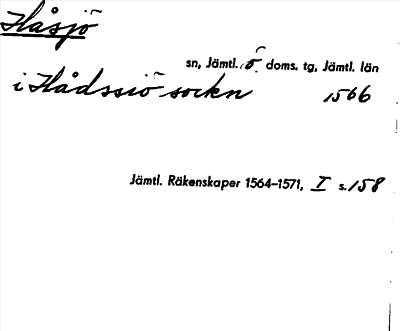 Håsjö
sn, Jämtl. ö. doms. tg, Jämtl. län
i Hådssiö sockn 1566
Jämtl. Räkenskaper 1564–1571, I s. 158